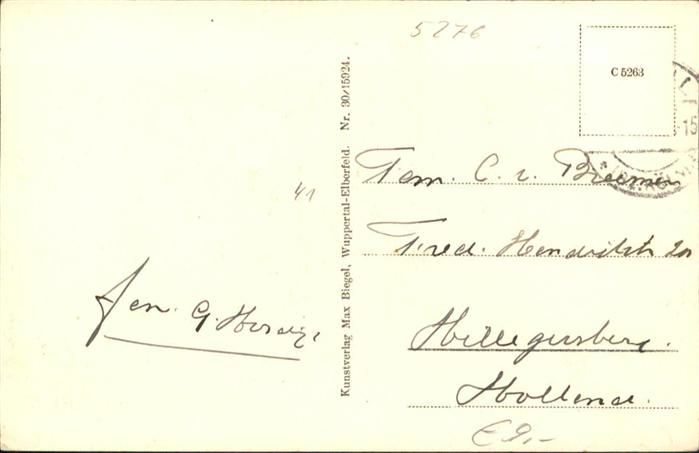 5276
C 5263
Kunstverlag Max Biegel, Wuppertal-Elberfeld. Nr. 30/15924.
41
Fam. C. v. Breemen
Fred. Hendrikstr 20
Hillegersberg.
Holland.
Fen. G.
€ 9,-